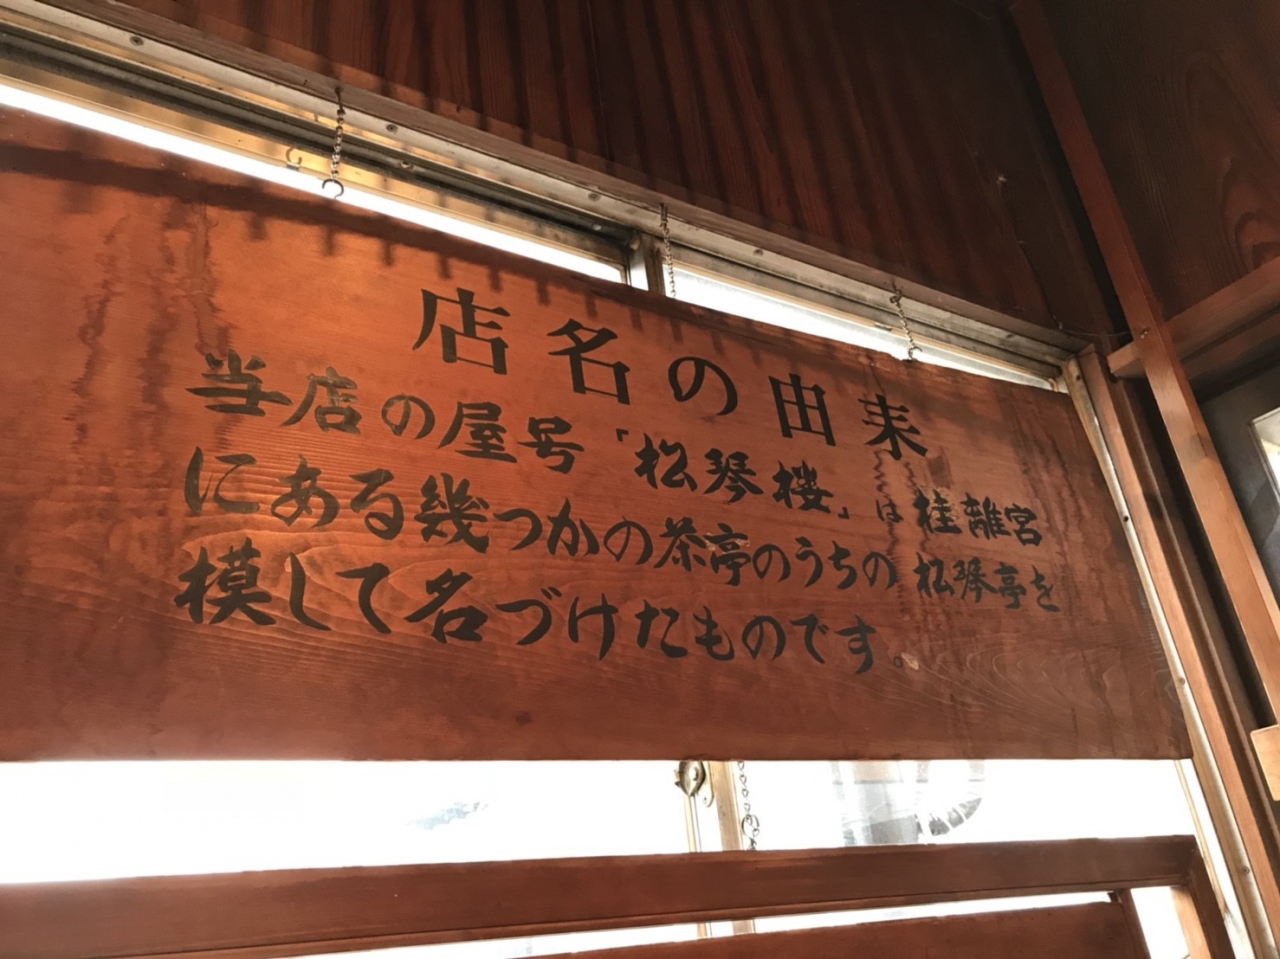 店名の由来
当店の屋号「松琴楼」は桂離宮
にある幾つかの茶亭のうちの松琴亭を
模して名づけたものです。